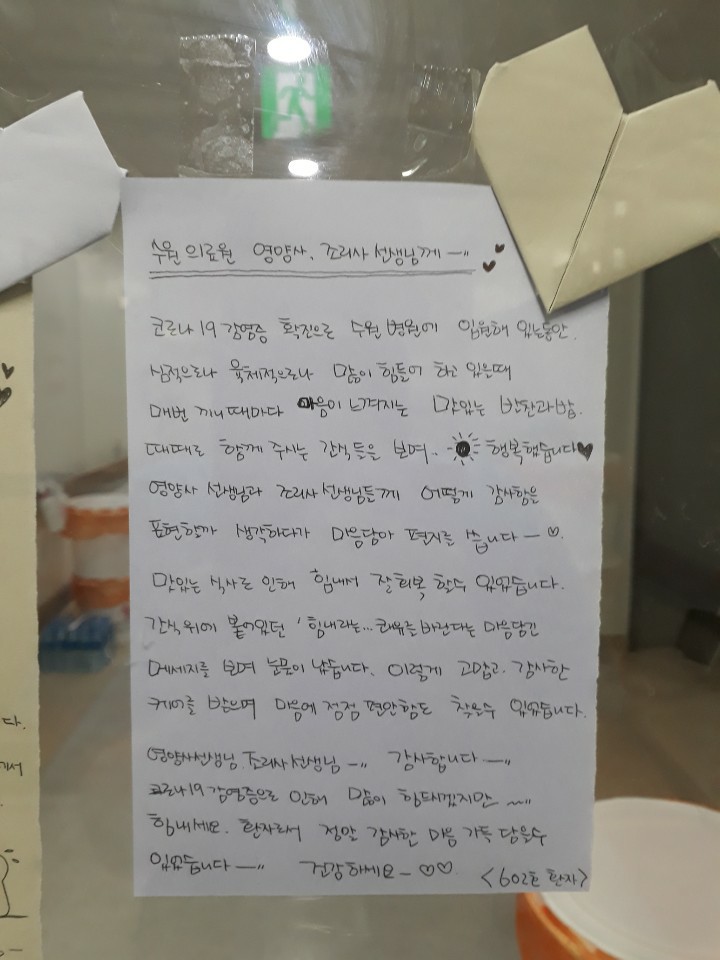 수원 의료원 영양사, 조리사 선생님께 ㅡ"
코로나19 감염증 확진으로 수원 병원에 입원해 있는동안.
심적으로나 육체적으로나 많이 힘들어 하고 있을때
매번 끼니때마다 마음이 느껴지는 맛있는 반찬과 밥.
때때로 함께 주시는 간식들을 보며.. 행복했습니다♥
영양사 선생님과 조리사 선생님들께 어떻게 감사함을
표현할까 생각하다가 마음담아 편지를 씁니다ㅡ♡.
맛있는 식사로 인해 힘내서 잘 회복 할수 있었습니다.
간식위에 붙어있던 '힘내라는... 쾌유를 바란다는 마음담긴
메세지를 보며 눈물이 났습니다. 이렇게 고맙고. 감사한
케어를 받으며 마음에 점점 편안함도 찾을수 있었습니다.
영양사선생님. 조리사 선생님 ㅡ" 감사합니다 ㅡ"
코로나19 감염증으로 인해 많이 힘드시겠지만 ~"
힘내세요. 환자로서 정말 감사한 마음 가득 담을수
있었습니다 ㅡ" 건강하세요ㅡ♡♡
<602호 환자>
다.
께서